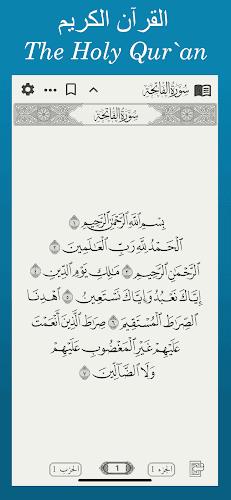 القرآن الكريم
The Holy Qur`an
سورة الفاتحة
سُورَةُ الفَاتِحَةِ
بِسْمِ اللَّهِ الرَّحْمَٰنِ الرَّحِيمِ ١
الْحَمْدُ لِلَّهِ رَبِّ الْعَالَمِينَ ٢
الرَّحْمَٰنِ الرَّحِيمِ ٣ مَالِكِ يَوْمِ الدِّينِ ٤
إِيَّاكَ نَعْبُدُ وَإِيَّاكَ نَسْتَعِينُ ٥ اهْدِنَا
الصِّرَاطَ الْمُسْتَقِيمَ ٦ صِرَاطَ الَّذِينَ أَنْعَمْتَ
عَلَيْهِمْ غَيْرِ الْمَغْضُوبِ عَلَيْهِمْ
وَلَا الضَّالِّينَ ٧
الجزء 1
1
الحزب 1